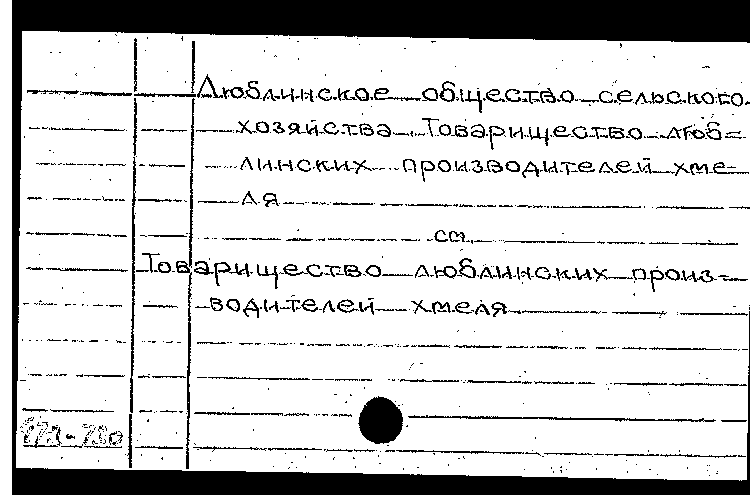 Люблинское общество сельского
хозяйства. Товарищество люб=
линских производителей хме-
ля
см.
Товарищество люблинских произ=
водителей хмеля